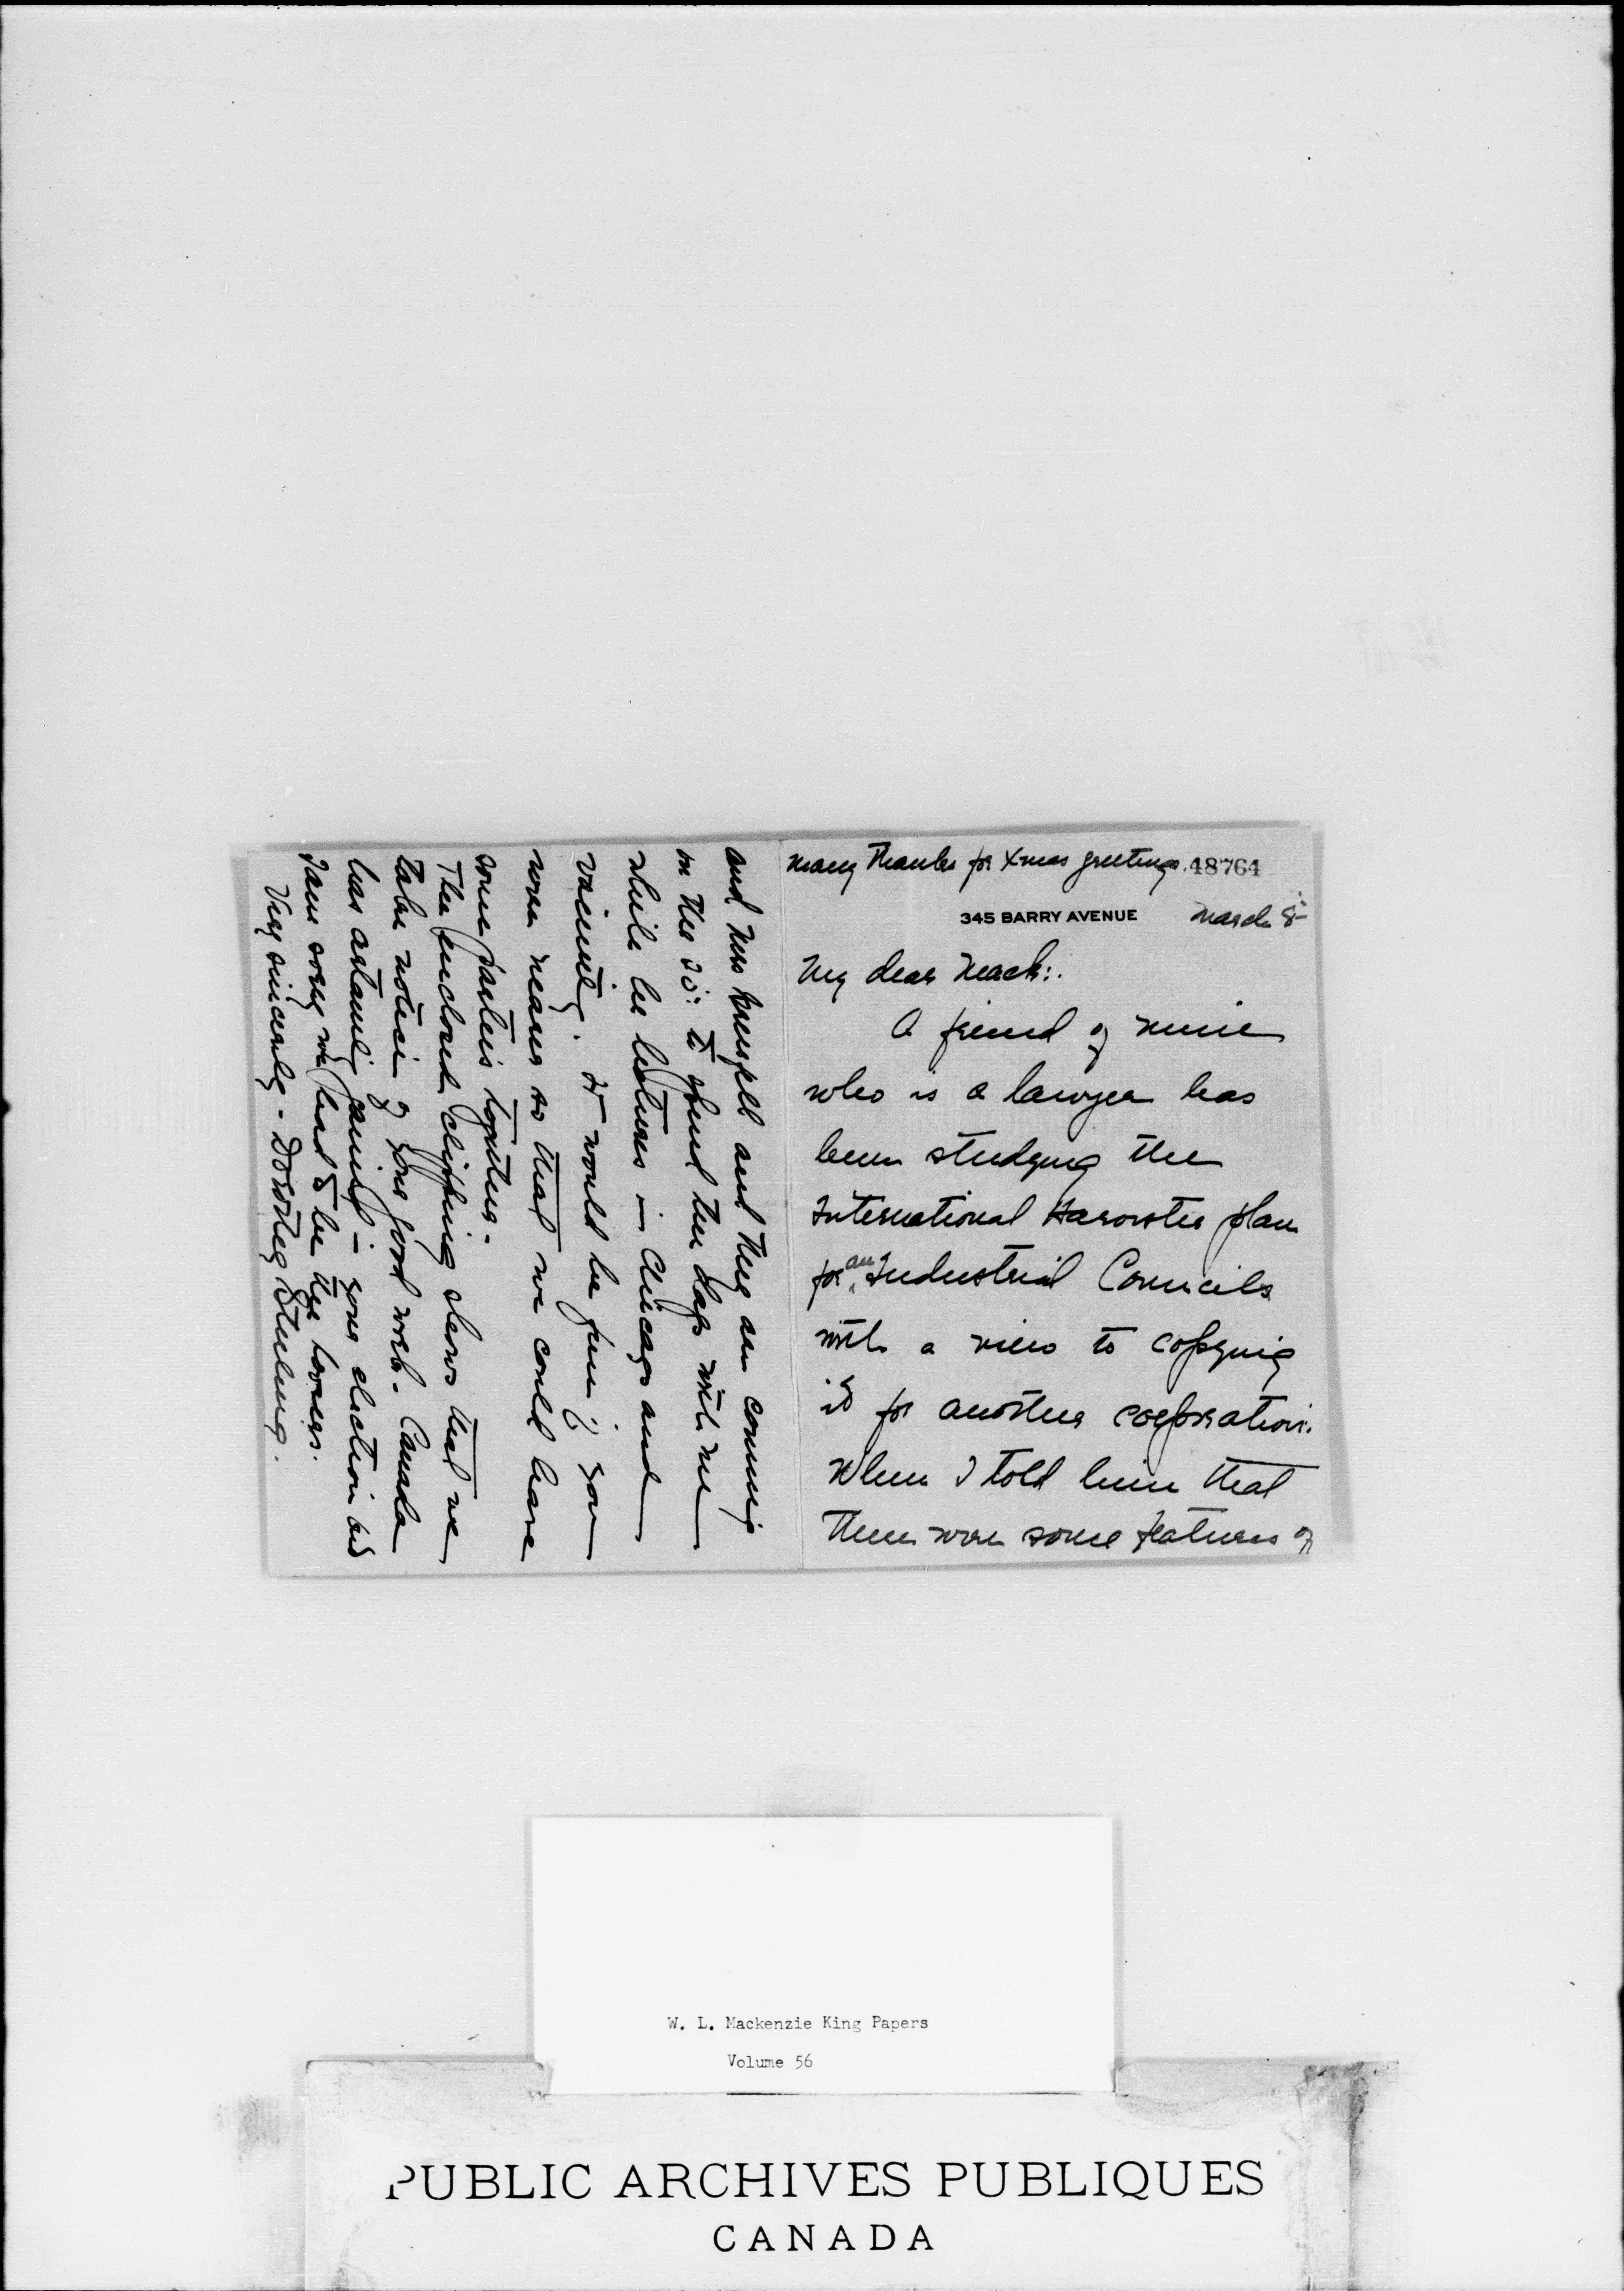 Many thanks for Xmas greetings. 48764
345 BARRY AVENUE March 8-
My dear Mack:
A friend of mine
who is a lawyer has
been studying the
International Harvester plan
for an Industrial Councils
with a view to copying
it for another corporation.
When I told him that
there were some features of
and Mrs and they are coming
on the to spend the day with me
while he lectures in Chicago and
vicinity. It would be fun if you
were near so that we could have
some parties together.
The enclosed clipping shows that we
take notice of your good work. Canada
has gained - your election and
I am sorry we had to be the losers.
Very sincerely - Dorothy Stirling.
W. L. Mackenzie King Papers
Volume 56
PUBLIC ARCHIVES PUBLIQUES
CANADA